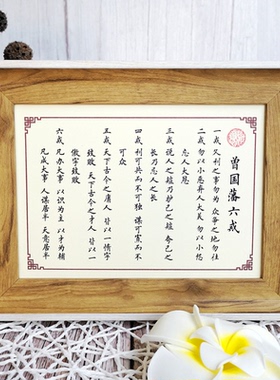 曾国藩六戒
一戒 久利之事勿为 众争之地勿往
二戒 勿以小恶弃人大美 勿以小怨
忘人大恩
三戒 说人之短乃护己之短 夸己之
长乃忌人之长
四戒 利可共而不可独 谋可寡而不
可众
五戒 天下古今之庸人 皆以一惰字
致败 天下古今之才人 皆以一
傲字致败
六戒 凡办大事 以识为主 以才为辅
凡成大事 人谋居半 天意居半